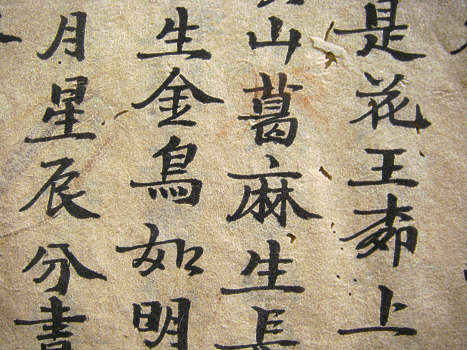 是花王上
山葛麻生長
生金鳥如明
月星辰分書